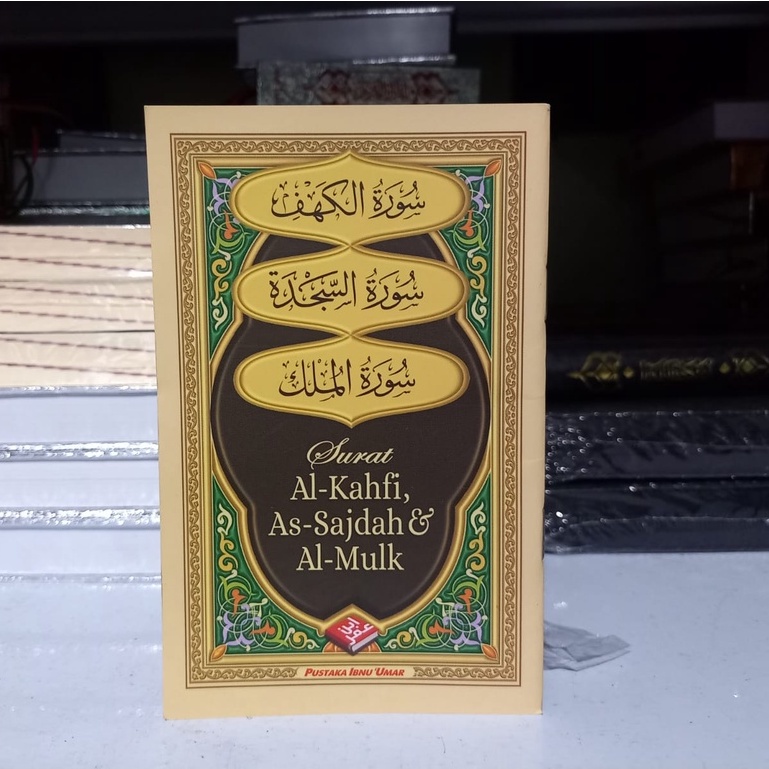 سُورَةُ الكَهْفِ
سُورَةُ السَّجْدَةِ
سُورَةُ المُلْكِ
Surat
Al-Kahfi,
As-Sajdah &
Al-Mulk
ابن عمر
PUSTAKA IBNU 'UMAR